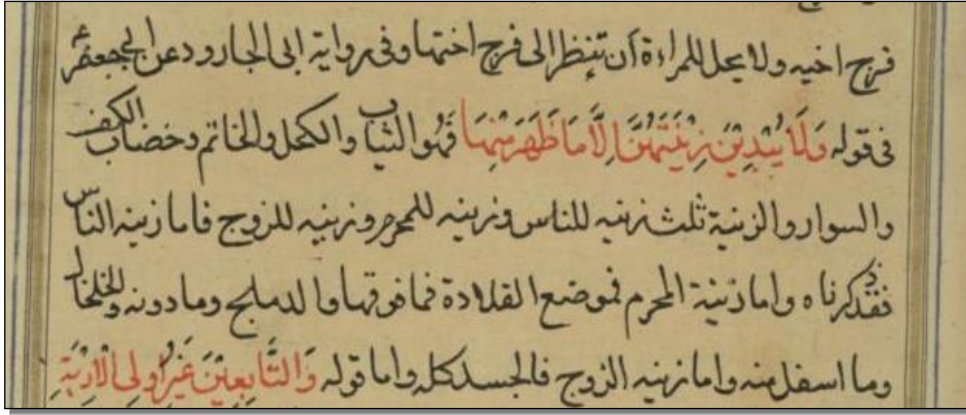 فرج اخيه ولا يحل للمراءة ان تنظر الى فرج اختها وفى رواية ابى الجارود عن ابيجعفر ع
فى قوله وَلَا يُبْدِيْنَ زِيْنَتَهُنَّ اِلَّا مَا ظَهَرَ مِنْهَا فَهُوَ الثياب والكحل والخاتم وخضاب الكف
والسوار والزينة ثلث زينه للناس وزينه للمحرم وزينه للزوج فاما زينه الناس
فقد ذكرناه واما زينة المحرم فموضع القلادة فمافوقها والدملج ومادونه والخلخال
وما اسفل منه واما زينه الزوج فالجسد كله واما قوله وَالتَّابِعِيْنَ غَيْرِ اُولِى الْاِرْبَةِ